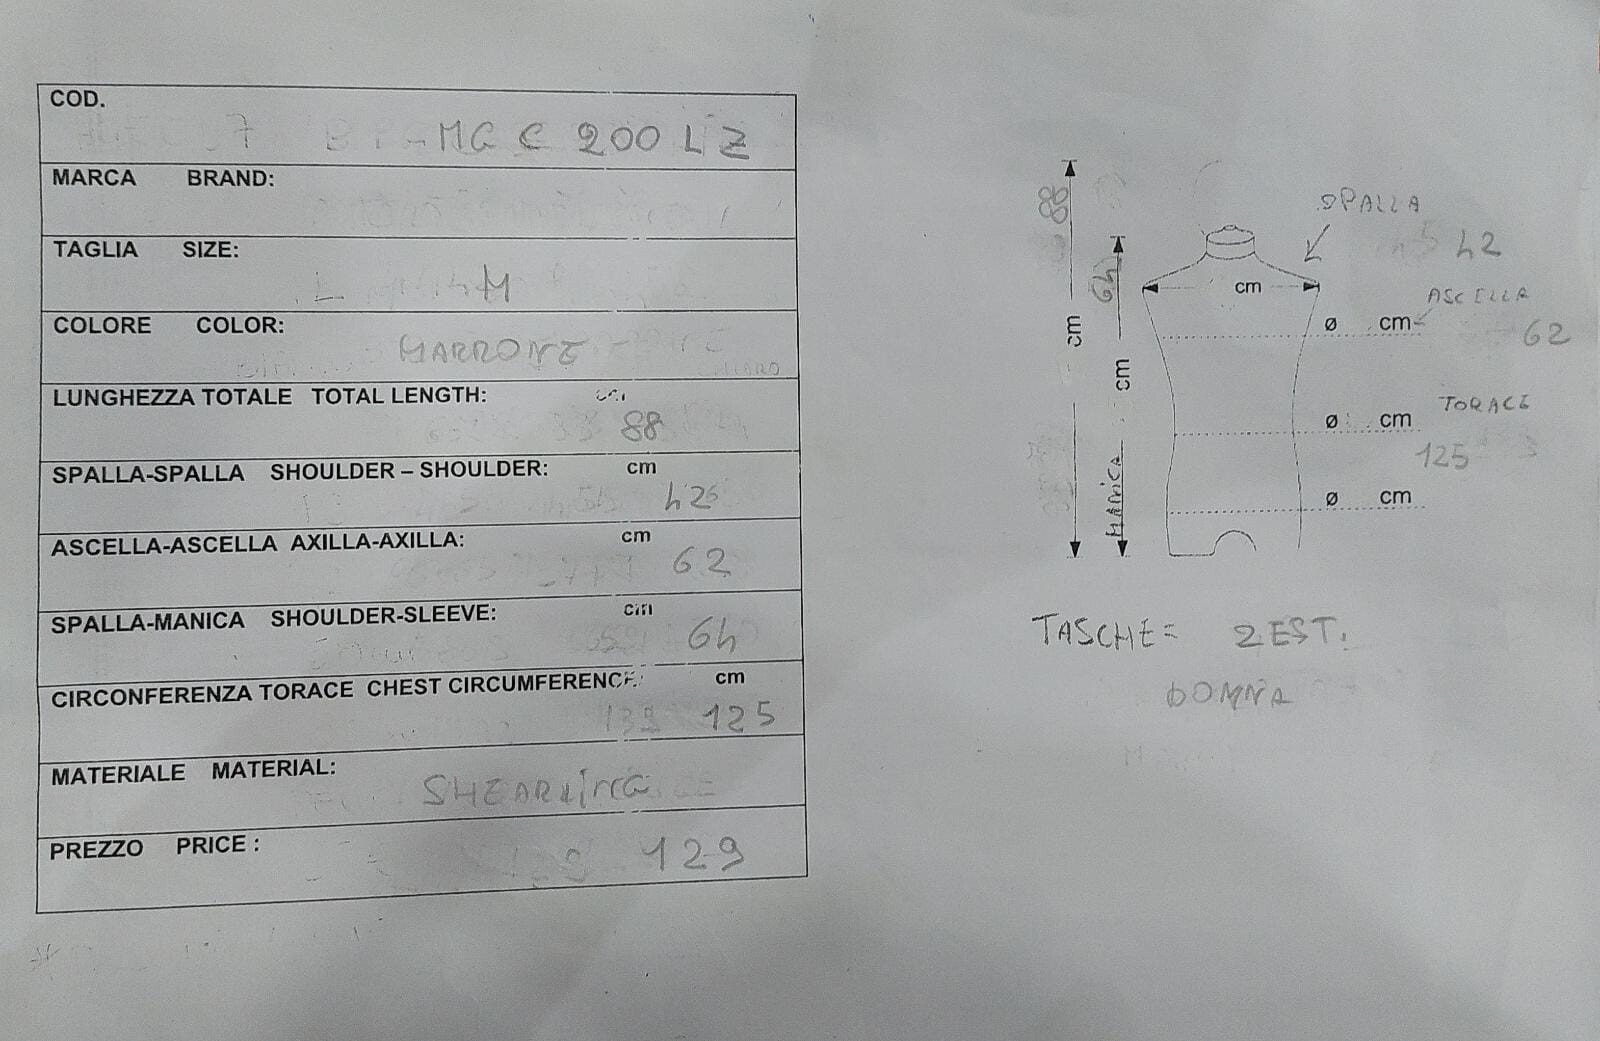 COD.
MG C 200 LZ
MARCA BRAND:
TAGLIA SIZE:
M
COLORE COLOR:
MARRONE
LUNGHEZZA TOTALE TOTAL LENGTH:
88
SPALLA-SPALLA SHOULDER – SHOULDER: cm
42
ASCELLA-ASCELLA AXILLA-AXILLA: cm
62
SPALLA-MANICA SHOULDER-SLEEVE: cm
64
CIRCONFERENZA TORACE CHEST CIRCUMFERENCE: cm
125
MATERIALE MATERIAL:
SHEARLING
PREZZO PRICE :
129
88
cm
64
cm
MANICA
SPALLA
42
cm
ASCELLA
ø cm
62
TORACE
ø cm
125
ø cm
TASCHE= 2 EST.
DONNA